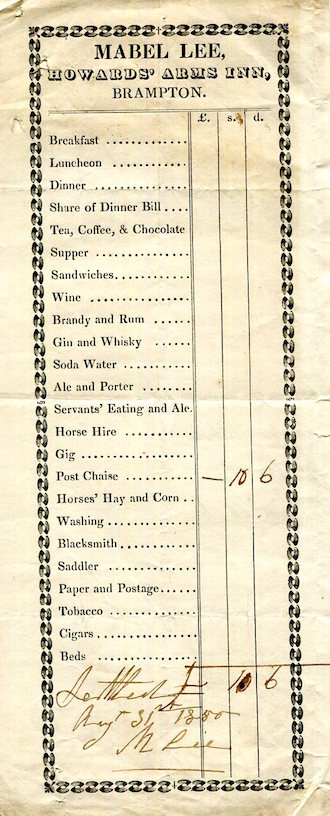 MABEL LEE,
HOWARDS' ARMS INN,
BRAMPTON.
£. s. d.
Breakfast ..............
Luncheon ............
Dinner ...............
Share of Dinner Bill ....
Tea, Coffee, & Chocolate
Supper ...............
Sandwiches............
Wine ................
Brandy and Rum ......
Gin and Whisky ......
Soda Water ...........
Ale and Porter ........
Servants' Eating and Ale.
Horse Hire ...........
Gig ..................
Post Chaise ........... — 10 6
Horses' Hay and Corn ..
Washing .............
Blacksmith.............
Saddler ..............
Paper and Postage......
Tobacco .............
Cigars................
Beds ................
Settled £ 10 6
Augt 31st 1850
M Lee